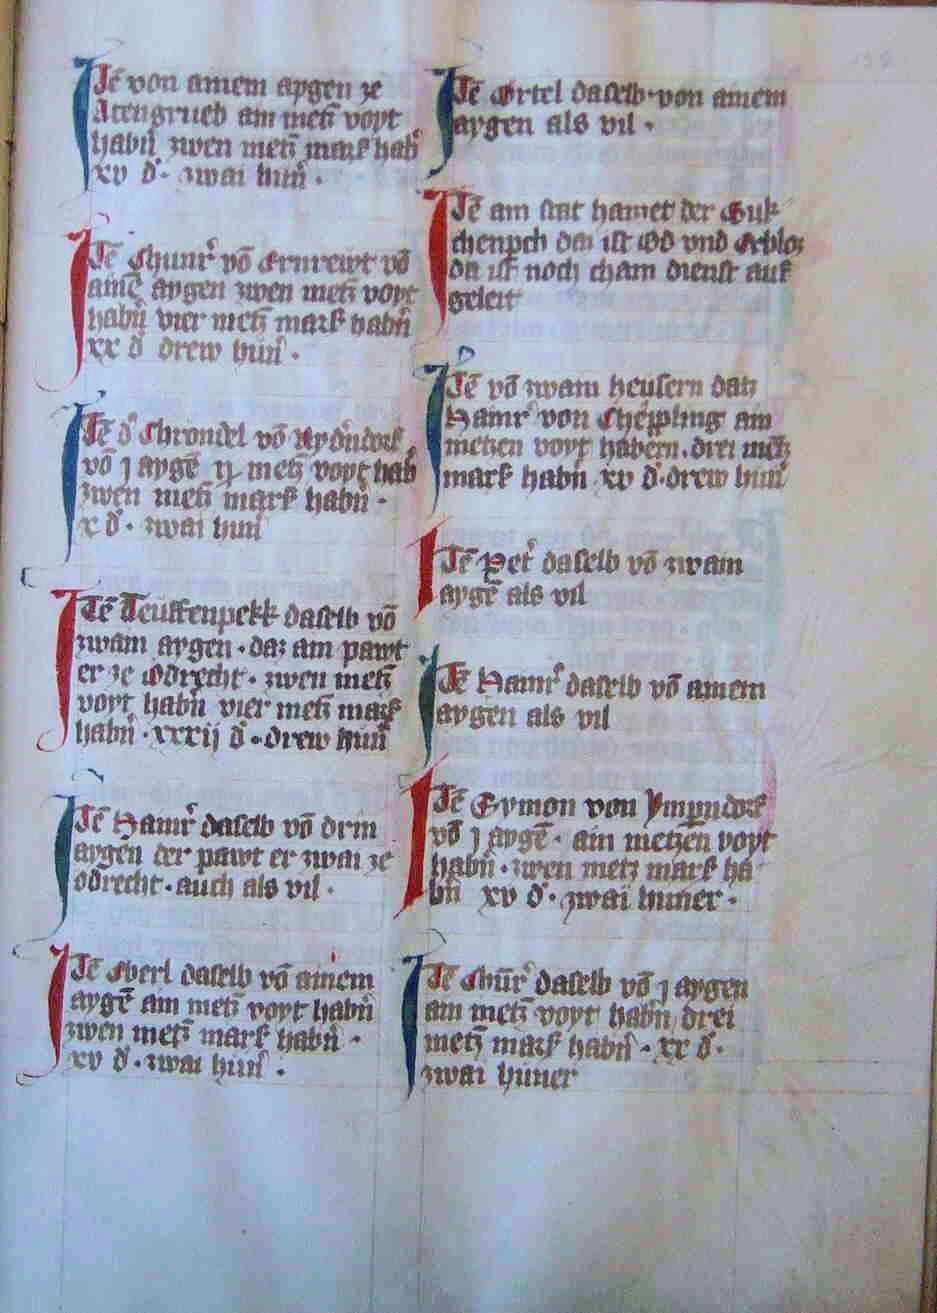 Itē von ainem aygen ze
Atengrueb ain metʒ voyt
habn̄ zwen metʒ mark hab̄
xv d̄ · zwai hün̄ ·
Itē Chunr̄ vō Ernrewt vō
aine̅ aygen zwen metʒ voyt
habn̄ vier metʒ mark habn̄
xx d̄ drew hün̄ ·
Itē d̄ Chrondel vō
vō j aygē metʒ voyt hab̄
zwen metʒ mark habn̄ ·
x d̄ · zwai hün̄
Itē Teuffenpekk daselb vō
zwain aygen · daz ain pawt
er ze Odrecht · zwen metʒ
voyt habn̄ vier metʒ mark
habn̄ · xxxij d̄ · drew hün̄
Itē Hainr̄ daselb vō drin
aygen der pawt er zwai ze
odrecht · auch als vil ·
Itē Eberl daselb vō ainem
aygē ain metʒ voyt habn̄
zwen metʒ mark habn̄ ·
xv d̄ · zwai hün̄ ·
Itē Ortel daselb · von ainem
aygen als vil ·
Itē am stat hainet der Guk
chenpch daz ist Od vnd Erbloz
da ist noch chain dienst auf
geleit
Itē vō zwain heusern datz
Hainr̄ von ain
metzen voyt habern · drei metʒ
mark habn̄ xv d̄ · drew hün̄
Itē Pet̄ daselb vō zwain
aygē als vil
Itē Hainr̄ daselb vō ainem
aygen als vil
Itē Symon von Ympndorf
vō j aygē · ain metzen voyt
habn̄ · zwen metz mark ha
bn̄ xv d̄ · zwai hüner ·
Itē Chūr̄ daselb vō j aygen
ain metʒ voyt habn̄ drei
metʒ mark habn̄ · xx d̄ ·
zwai hüner